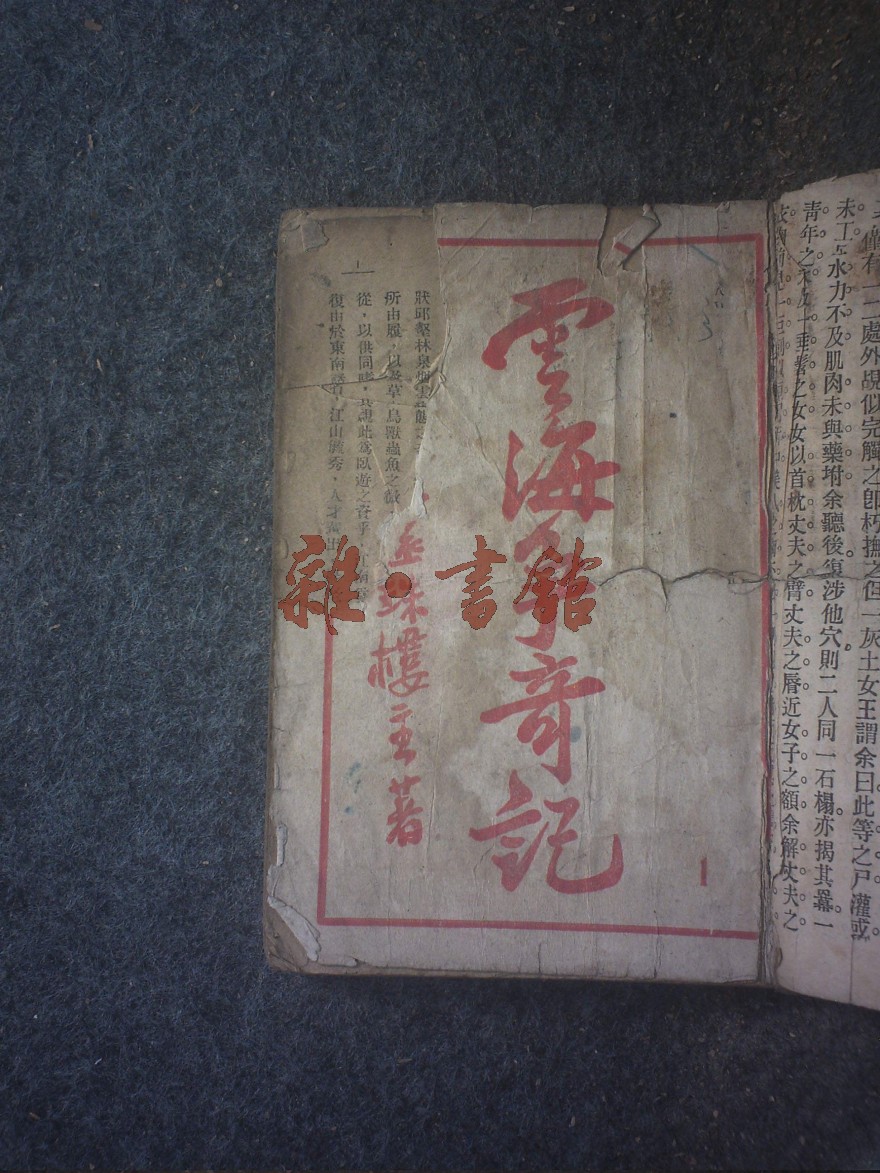 雲海爭奇記
還珠樓主著
1
雜·書館
狀邱壑林泉烟雲
所由履，以及草
鳥獸蟲魚之
從，以供同
此爲臥遊之資乎
復由於東南
江山
秀，人才
僅有一二處外覘似完觸之卽朽撫之但一灰土女王謂余曰此等之尸灌或
未工
水力不及肌肉未與藥坿余聽後復涉他穴則二人同一石榻亦揭其冪一
青年之丈夫一垂髫之女女以首枕丈夫之臂丈夫之唇近女子之額余解丈夫之